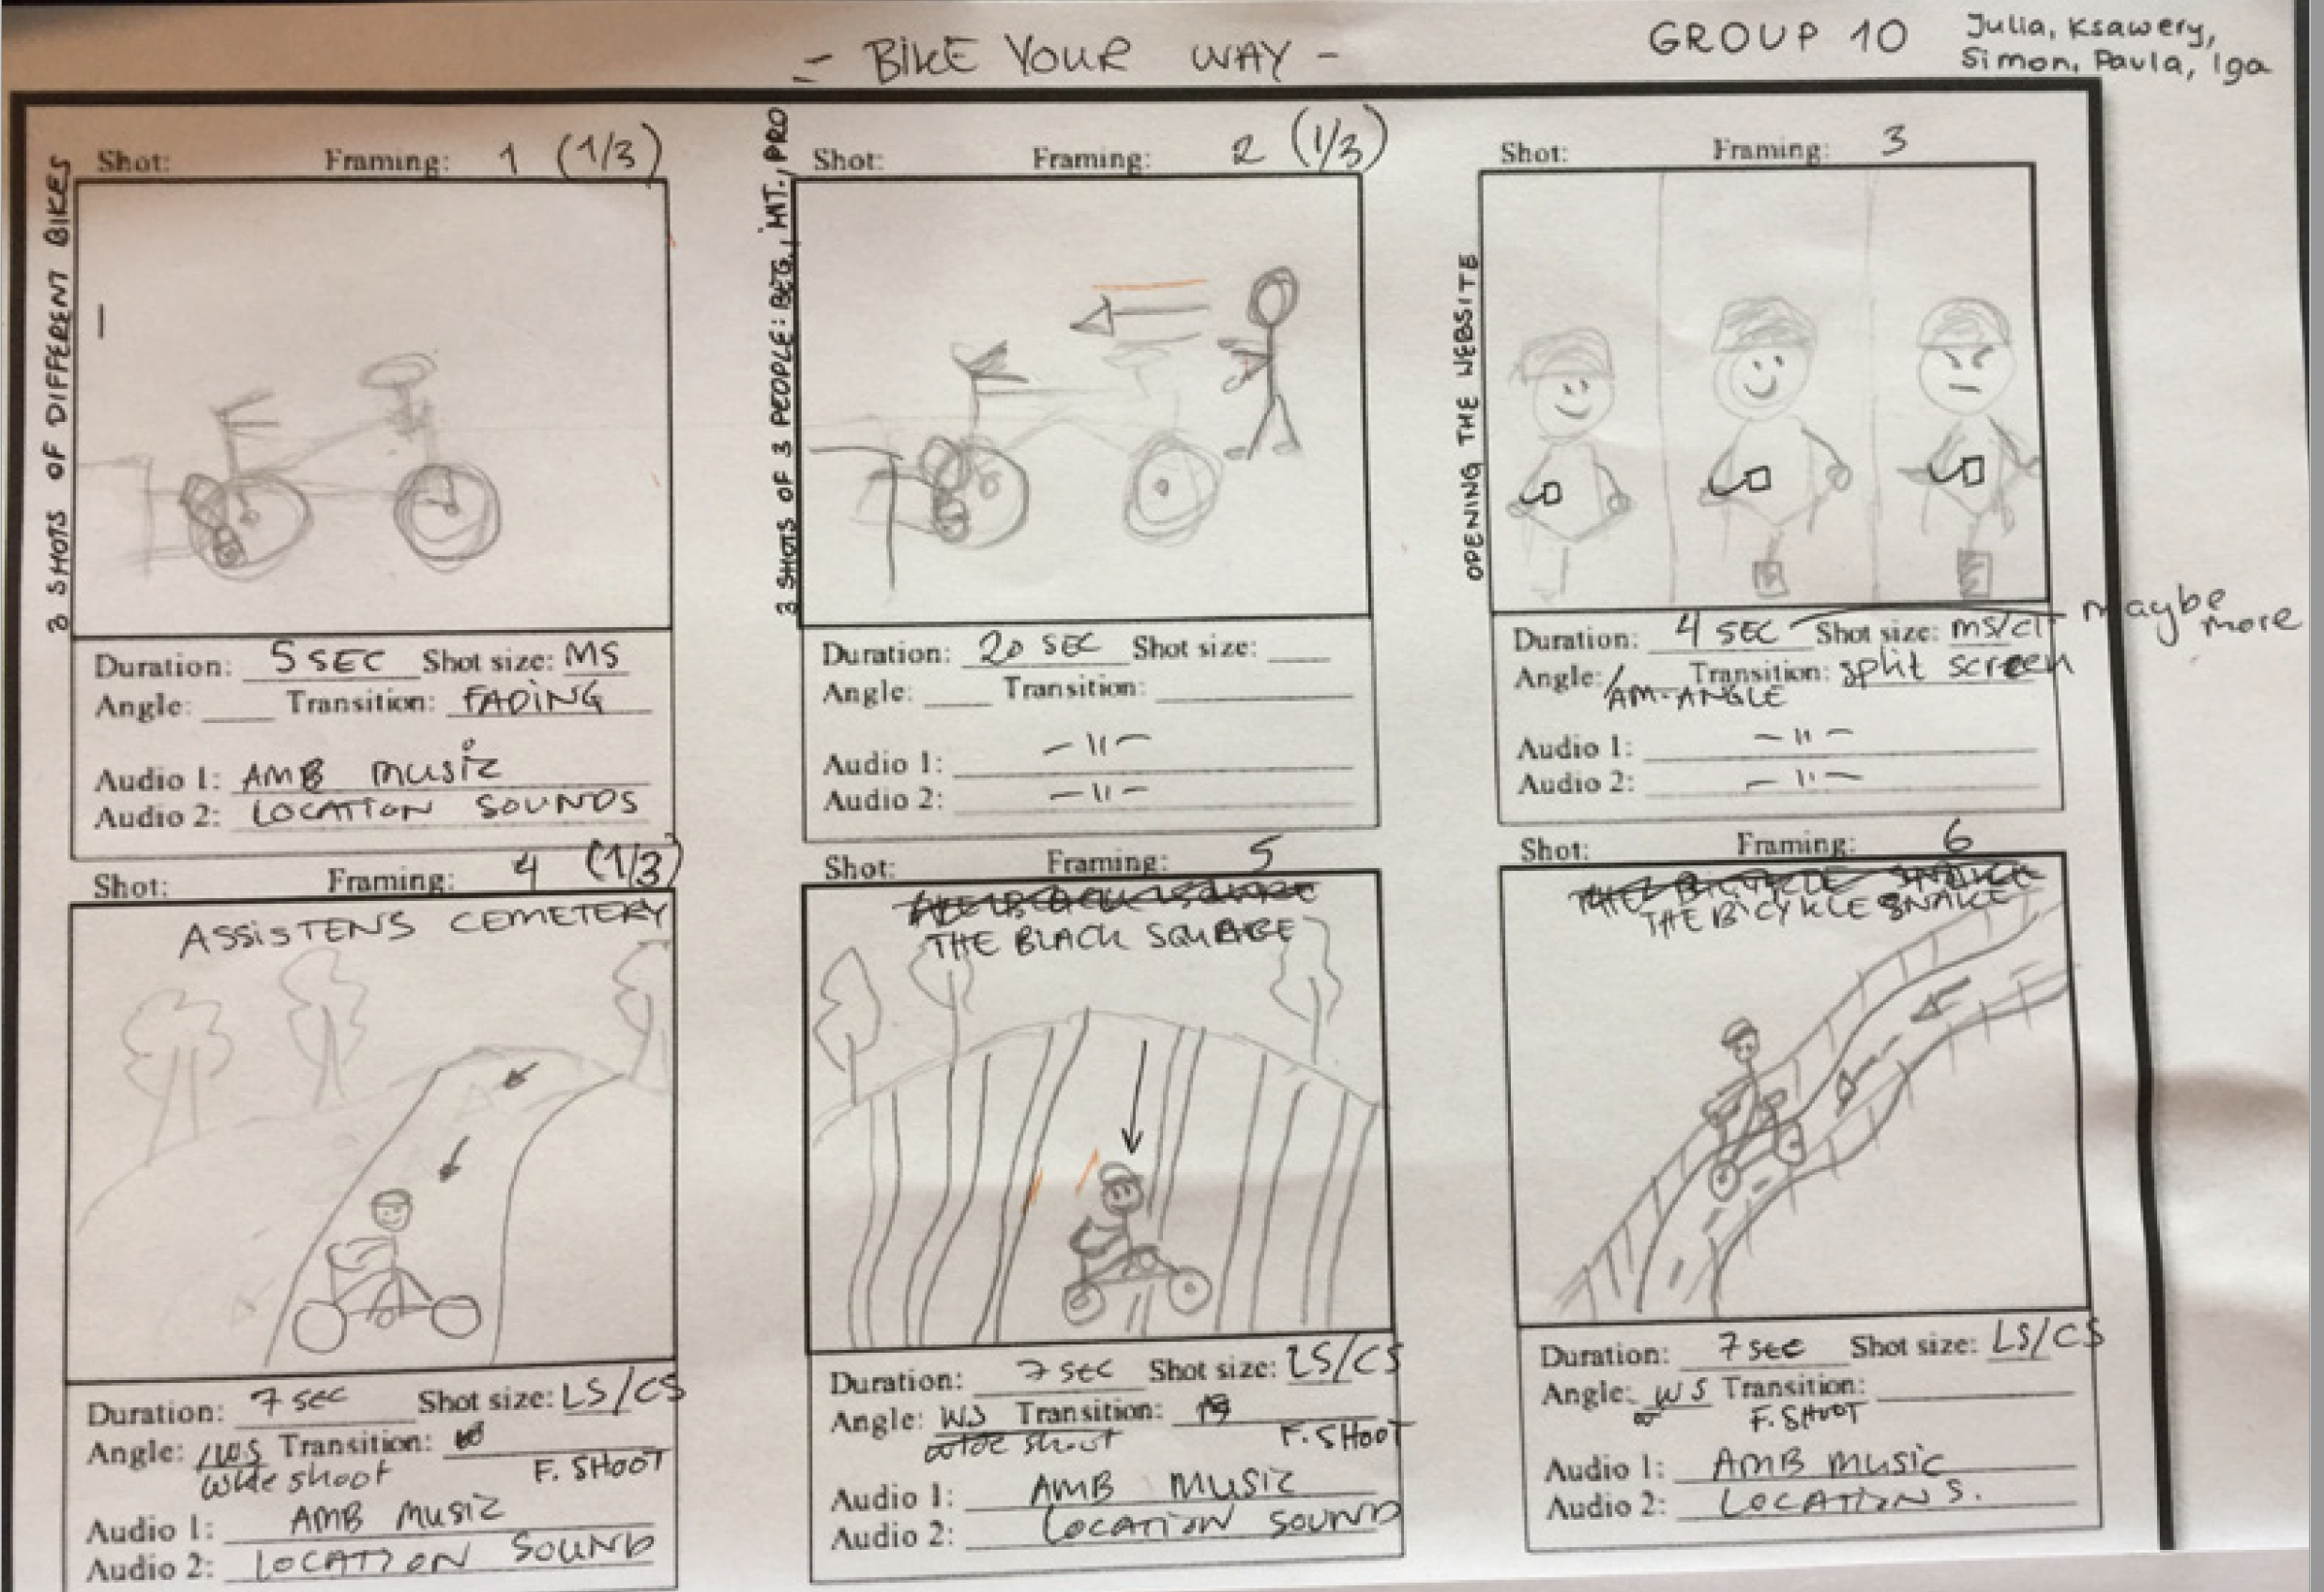 - BIKE YOUR WAY -
GROUP 10
Julia, Ksawery,
Simon, Paula, Iga
3 SHOTS OF DIFFERENT BIKES
Shot: Framing: 1 (1/3)
Duration: 5 SEC Shot size: MS
Angle: Transition: FADING
Audio 1: AMB MUSIC
Audio 2: LOCATION SOUNDS
3 SHOTS OF 3 PEOPLE: BEG., INT., PRO
Shot: Framing: 2 (1/3)
Duration: 20 SEC Shot size:
Angle: Transition:
Audio 1: -11-
Audio 2: -11-
OPENING THE WEBSITE
Shot: Framing: 3
Duration: 4 SEC Shot size: MS/
maybe
more
Angle: Transition: split screen
AM-ANGLE
Audio 1: -11-
Audio 2: -11-
Shot: Framing: 4 (1/3)
ASSISTENS CEMETERY
Duration: 7 SEC Shot size: LS/CS
Angle: WS Transition:
wide shoot F. SHOOT
Audio 1: AMB MUSIC
Audio 2: LOCATION SOUND
Shot: Framing: 5
THE BLACK SQUARE
Duration: 7 SEC Shot size: LS/CS
Angle: WS Transition:
wide shoot F. SHOOT
Audio 1: AMB MUSIC
Audio 2: LOCATION SOUND
Shot: Framing: 6
THE BICYKLE SNAKE
Duration: 7 SEC Shot size: LS/CS
Angle: WS Transition:
F. SHOOT
Audio 1: AMB MUSIC
Audio 2: LOCATION S.